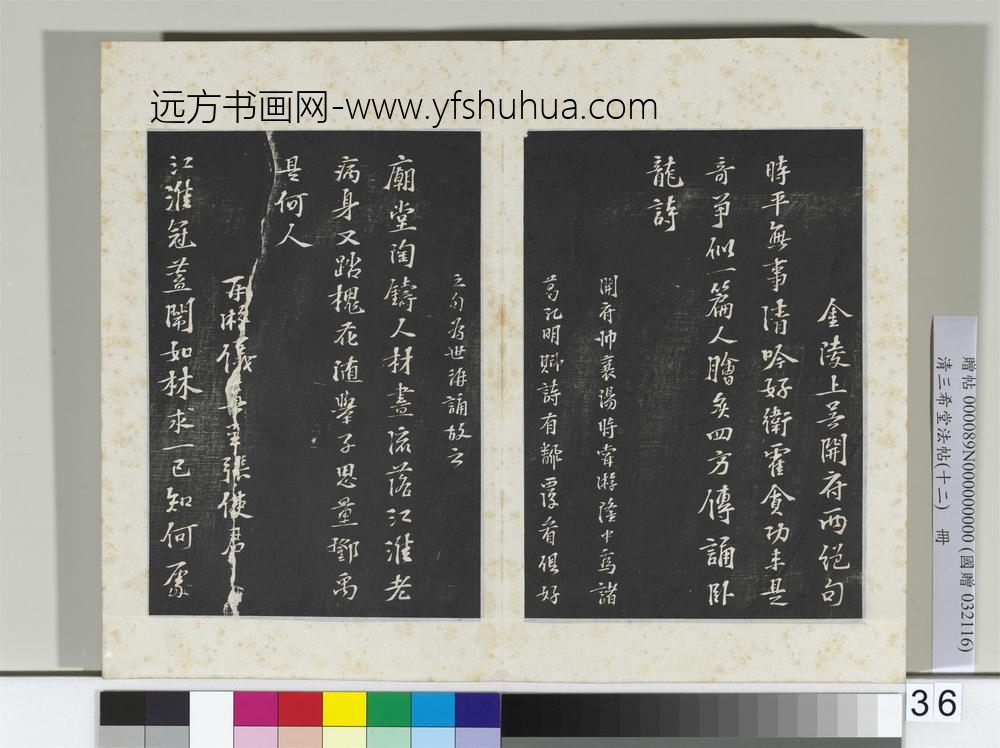 远方书画网-www.yfshuhua.com
金陵上吴開府兩絕句
時平無事清吟好衛霍貪功未是
奇爭似一篇人膾炙四方傳誦臥
龍詩
開府帥襄陽時嘗游隆中為諸
葛孔明賦詩有覆看俱好
之句為世誦故云
廟堂陶鑄人材盡流落江淮老
病身又踏槐花隨舉子思量鄧禹
是何人
再游儀真呈張使君
江淮冠蓋閙如林求一已知何處
贈帖 000089N000000000 (國贈 032116)
清三希堂法帖(十二) 冊
36